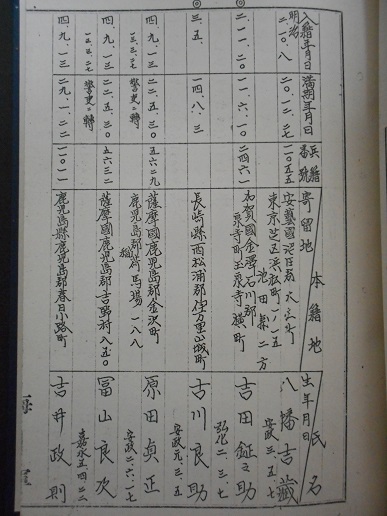 入籍年月日 満期年月日 兵籍番號 寄留地 本籍地 生年月日 氏名
明治
二、一〇、八 二〇、一二、二七 一〇五五
東京芝区浜松町一ノ一五
池田 方
八幡吉藏
安政三、五、七
二、一一、二〇 一一、六、一〇 二四六一
加賀國金澤石川郡
泉寺町玉泉寺横町
吉田鉦之助
弘化二、三、七
三、五、 一四、八、三
長崎縣西松浦郡伊万里山城町
古川良助
安政元、三、五
四、九、一三 二二、五、三〇 五六二九
一五、三、二七 警吏ニ轉
薩摩國鹿児島郡金沢町
鹿児島郡 馬場一八八
原田貞正
安政二、六、一七
四、九、一三 二二、五、三〇 五六三二
一五、三、二七 警吏ニ轉
薩摩國鹿児島郡吉野村八五〇
冨山良次
嘉永五、四、二二
四、九、一三 二九、一、二二 一〇一一
鹿児島縣鹿児島郡春日小路町
吉井政則
海軍